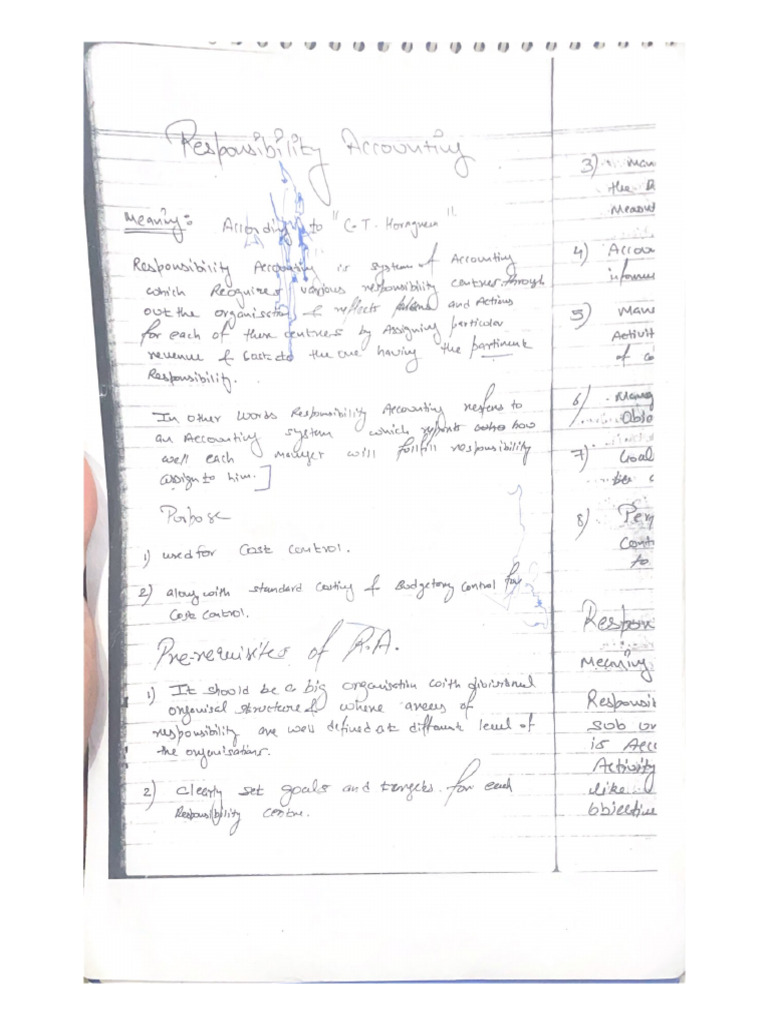 Responsibility Accounting
Meaning: According to "C.T. Horngreen".
Responsibility Accounting is system of Accounting
which Recognizes various responsibility centres through
out the organisation & reflects plans and Actions
for each of these centres by Assigning particular
revenue & Cost to the one having the partinent
Responsibility.
In other words Responsibility Accounting refers to
an Accounting system which reports how
well each manager will fullfill responsibility
assign to him.]
Purpose
1) used for Cost control.
2) along with standard Costing & Budgetory Control for
Cost control.
Pre-requisites of R.A.
1) It should be a big organisation with divisional
organisal structure & where areas of
responsibility are well defined at different level of
the organisations.
2) clearly set goals and targets for each
Responsibility centre.
3) Man
the
Measu
4) Accou
5) Mana
Activit
of co
6) Manag
7) Goal
8)
Cont
to
Respon
Meaning
Responsi
Sub or
is Acc
Activity
like
objective